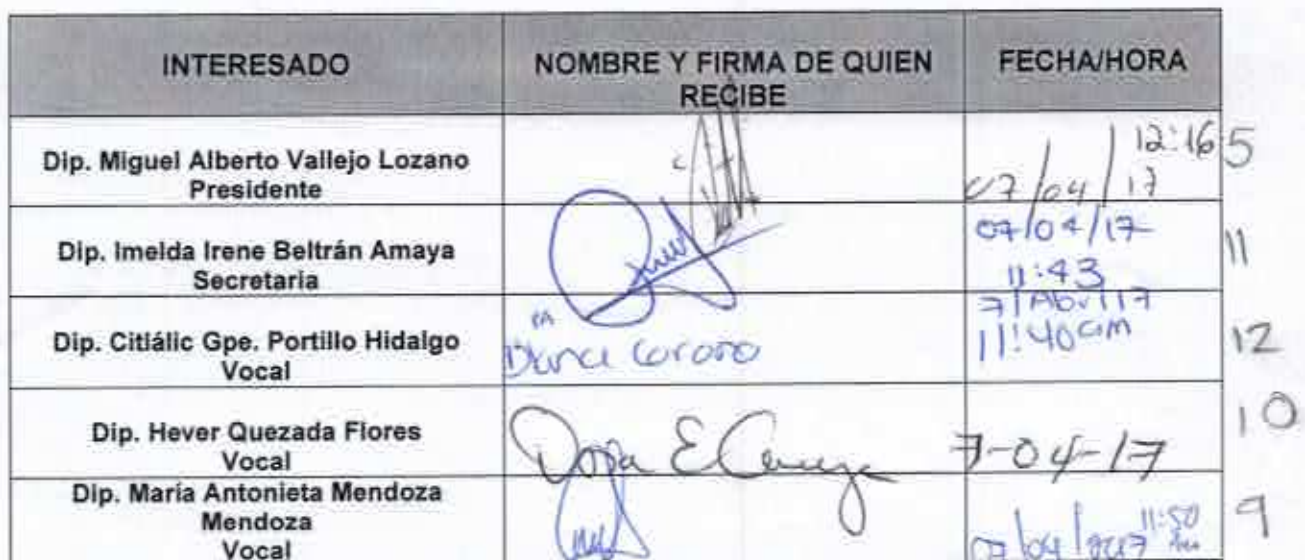 INTERESADO NOMBRE Y FIRMA DE QUIEN RECIBE FECHA/HORA
Dip. Miguel Alberto Vallejo Lozano
Presidente
12:16
07/04/17
5
Dip. Imelda Irene Beltrán Amaya
Secretaria
07/04/17
11:43
11
Dip. Citlálic Gpe. Portillo Hidalgo
Vocal
7/Abr/17
11:40am
12
Dip. Hever Quezada Flores
Vocal
7-04-17
10
Dip. María Antonieta Mendoza
Mendoza
Vocal
11:50
07/04/2017
9